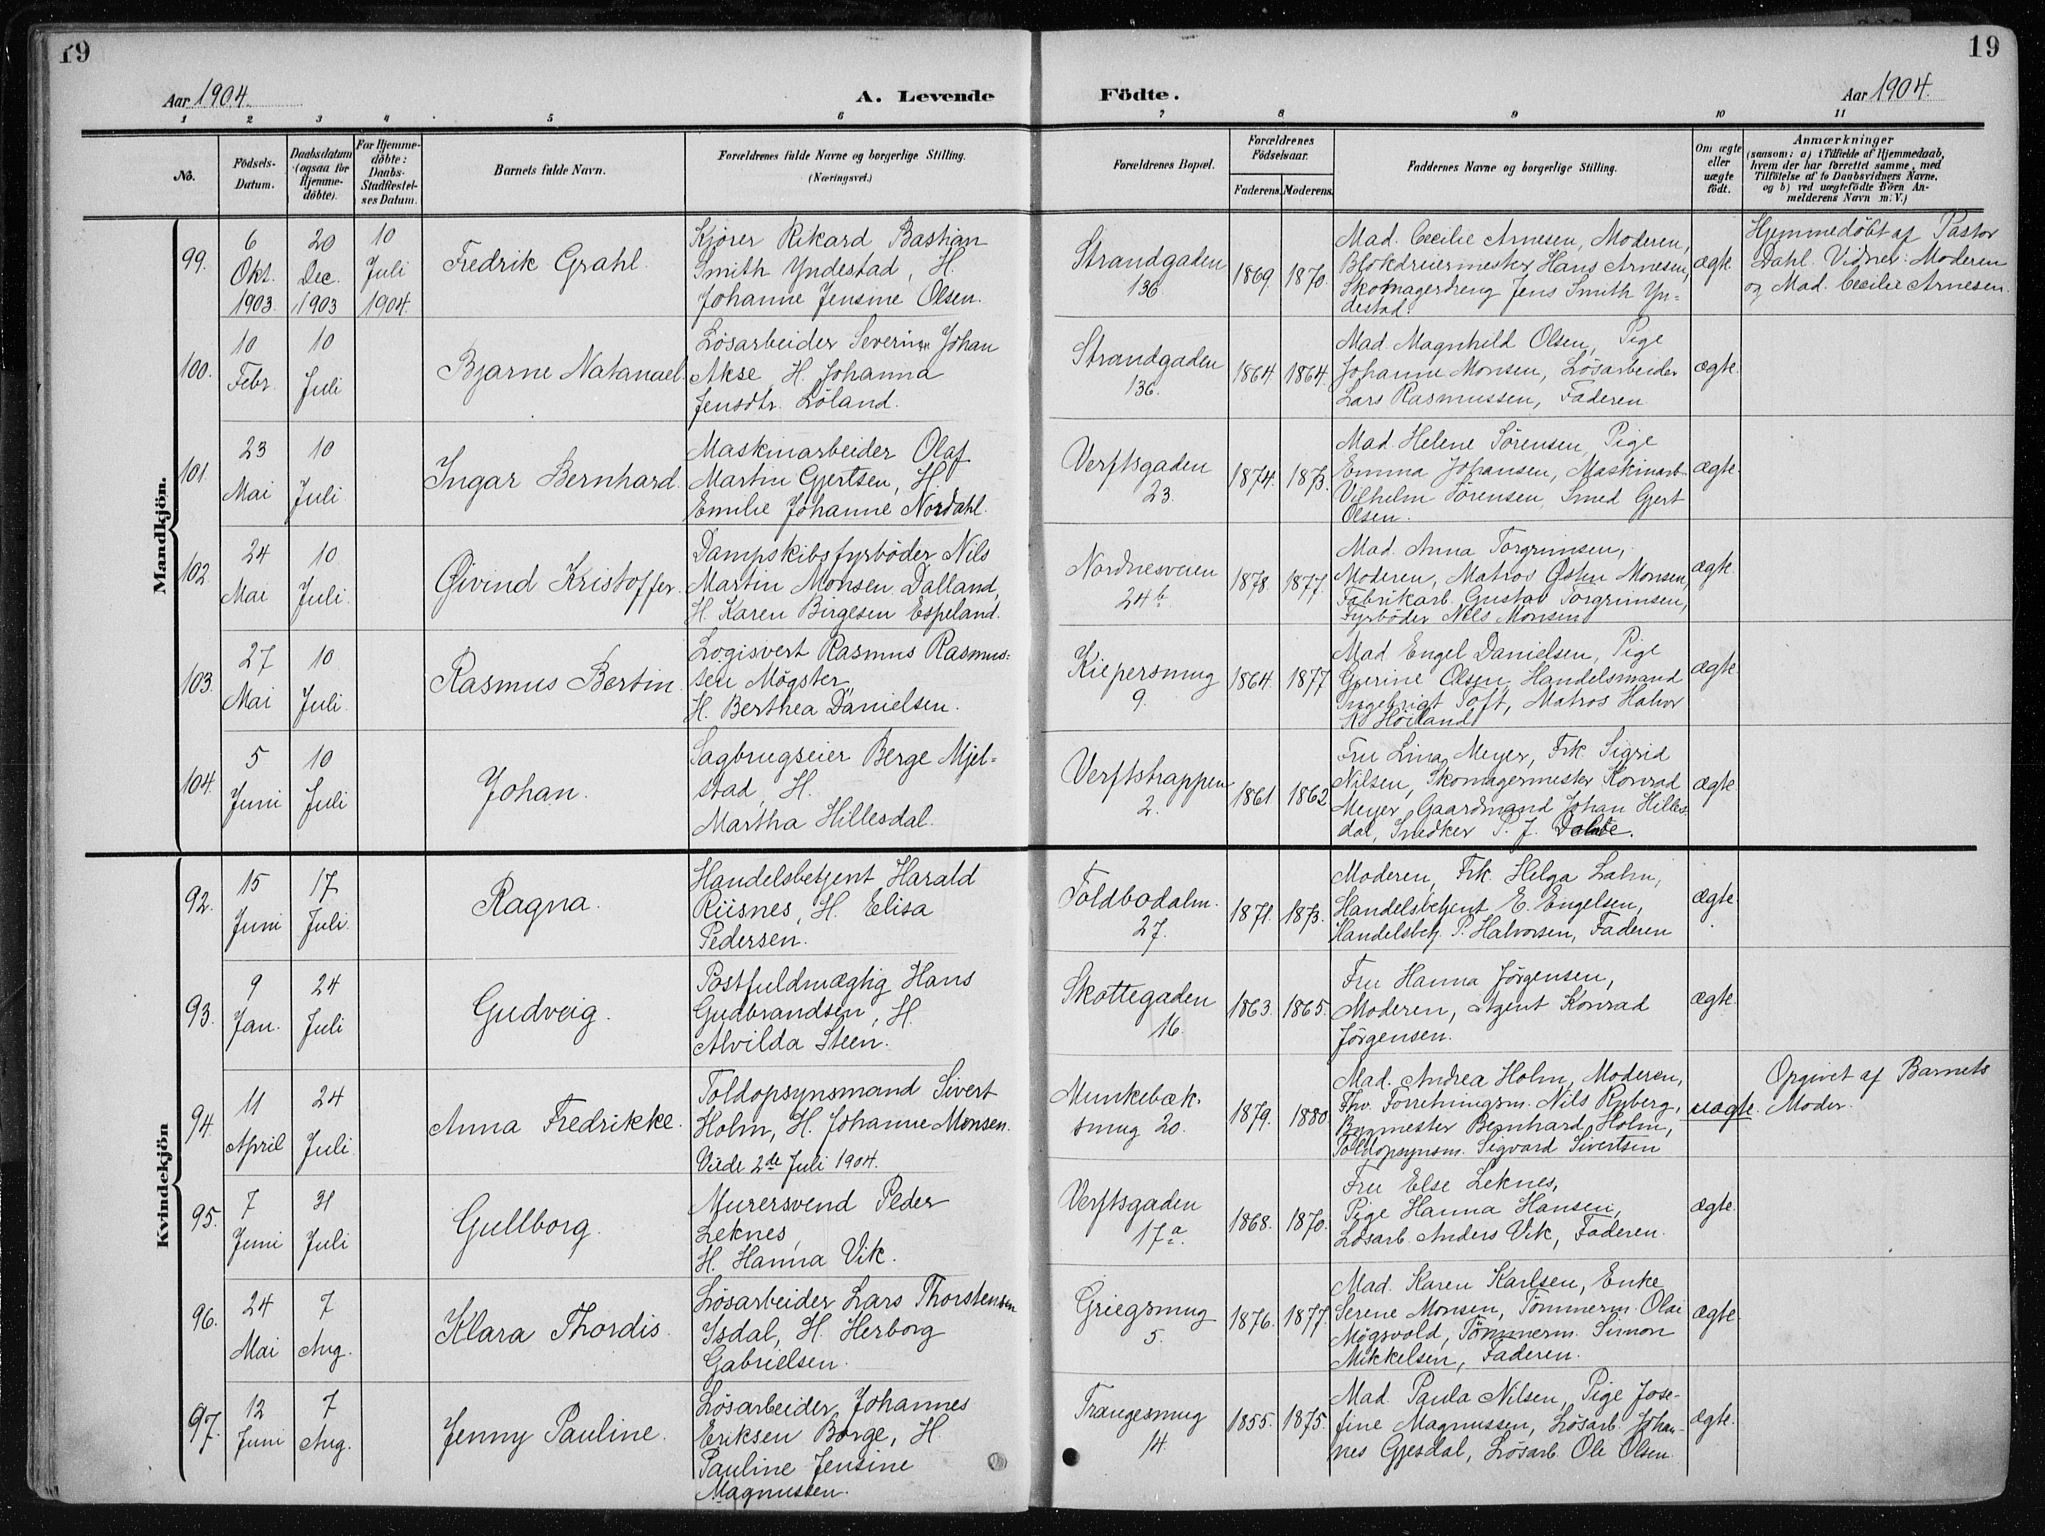 19
19
Aar 1904.
A. Levende
Födte.
Aar 1904.
1 2 3 4 5 6 7 8 9 10 11
No.
Födsels-
Datum.
Daabsdatum
(ogsaa for
Hjemme-
döbte).
For Hjemme-
döbte:
Daabs-
Stadfæstel-
ses Datum.
Barnets fulde Navn.
Forældrenes fulde Navne og borgerlige Stilling.
(Næringsvei.)
Forældrenes Bopæl.
Forældrenes
Födselsaar.
Faderens. Moderens.
Faddernes Navne og borgerlige Stilling.
Om ægte
eller
uægte
födt.
Anmærkninger
(saasom: a) i Tilfælde af Hjemmedaab,
hvem der har forrettet samme, med
Tilföielse af to Daabsvidners Navne,
og b) ved uægtefödte Börn An-
melderens Navn m: V.)
Mandkjön.
99.
6
Okt.
1903.
20
Dec.
1903
10
Juli
1904.
Fredrik Grahl.
Kjører Rikard Bastian
Smith Yndestad, H.
Johanne Jensine Olsen.
Strandgaden
136.
1869. 1870.
Mad. Cecilie Arnesen, Moderen,
Blokdreiermester Hans Arnesen,
Skomagerdreng Jens Smith Yn-
destad.
ægte.
Hjemmedøbt af Pastor
Dahl. Vidner: Moderen
og Mad. Cecilie Arnesen.
100.
10
Febr.
10
Juli
Bjarne Natanael.
Løsarbeider Severin Johan
Akse, H. Johanna
Jensdtr. Løland.
Strandgaden
136.
1864. 1864.
Mad. Magnhild Olsen, Pige
Johanne Monsen, Løsarbeider
Lars Rasmussen, Faderen
ægte.
101.
23
Mai
10
Juli.
Ingar Bernhard.
Maskinarbeider Olaf
Martin Gjertsen, H.
Emilie Johanne Nordahl.
Verftsgaden
23.
1874. 1873.
Mad. Helene Sørensen, Pige
Emma Johansen, Maskinarb.
Vilhelm Sørensen, Smed Gjert
Olsen.
ægte.
102.
24
Mai
10
Juli.
Øivind Kristoffer.
Dampskibsfyrbøder Nils
Martin Monsen Dalland,
H. Karen Birgesen Espeland.
Nordnesveien
24b.
1878. 1877.
Mad. Anna Torgrimsen,
Moderen, Matros Østen Monsen,
Fabrikarb. Gustav Torgrimsen,
Fyrbøder Nils Monsen
ægte.
103.
27
Mai
10
Juli.
Rasmus Bertin.
Logisvert Rasmus Rasmus-
sen Møgster,
H. Berthea Danielsen.
Kiepersmug
9.
1864. 1877
Mad. Engel Danielsen, Pige
Gurine Olsen, Handelsmand
Ingebrigt Toft, Matros Halvor
Høiland
ægte.
104.
5
Juni
10
Juli
Johan.
Sagbrugseier Berge Mjel-
stad, H.
Martha Hillesdal.
Verftstrappen
2.
1861. 1862
Fru Lina Meyer, Frk. Sigrid
Nilsen, Skomagermester Konrad
Meyer, Gaardmand Johan Hilles-
dal, Snedker P. J.
ægte.
Kvindekjön
92.
15
Juni
17
Juli.
Ragna.
Handelsbetjent Harald
Riisnes, H. Elisa
Pedersen.
Toldbodalm.
27.
1871. 1873.
Moderen, Frk. Helga Lahn,
Handelsbetjent E. Engelsen,
Handelsbetj. P. Halvorsen, Faderen
ægte.
93.
9
Jan.
24
Juli
Gudveig.
Postfuldmægtig Hans
Gudbrandsen, H.
Alvilda Steen.
Skottegaden
16.
1863. 1865.
Fru Hanna Jørgensen,
Moderen, Agent Konrad
Jørgensen.
ægte.
94.
11
April
24
Juli.
Anna Fredrikke.
Toldopsynsmand Sivert
Holm, H. Johanne Monsen.
Viede 2de Juli 1904.
Munkebæk-
smug 20.
1879. 1880.
Mad. Andrea Holm, Moderen,
Fhv. Forretningsm. Nils Ryberg,
Bygmester Bernhard Holm,
Toldopsynsm. Sigvard Sivertsen
uægte.
Opgivet af Barnets
Moder.
95.
7
Juni
31
Juli
Gullborg.
Murersvend Peder
Leknes,
H. Hanna Vik.
Verftsgaden
17a.
1868. 1870.
Fru Else Leknes,
Pige Hanna Hansen,
Løsarb. Anders Vik, Faderen.
ægte.
96.
24
Mai
7
Aug.
Klara Thordis.
Løsarbeider Lars Thorstensen
Isdal, H. Herborg
Gabrielsen.
Griegsmug
5.
1876. 1877.
Mad. Karen Karlsen, Enke
Serene Monsen, Tømmerm. Olai
Møgsvold, Tømmerm. Simon
Mikkelsen, Faderen.
ægte.
97.
12
Juni
7
Aug.
Jenny Pauline.
Løsarbeider Johannes
Eriksen Borge, H.
Pauline Jensine
Magnussen.
Trangesmug
14.
1855. 1875.
Mad. Paula Nilsen, Pige Jose-
fine Magnussen, Løsarb. Johan-
nes Gjesdal, Løsarb. Ole Olsen.
ægte.